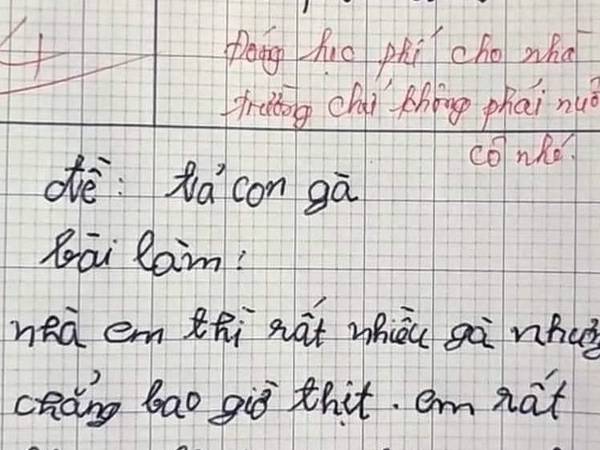 4
Đóng học phí cho nhà
trường chứ không phải nuôi
cô nhé.
đề: tả con gà
bài làm:
nhà em thì rất nhiều gà nhưng
chẳng bao giờ thịt. em rất